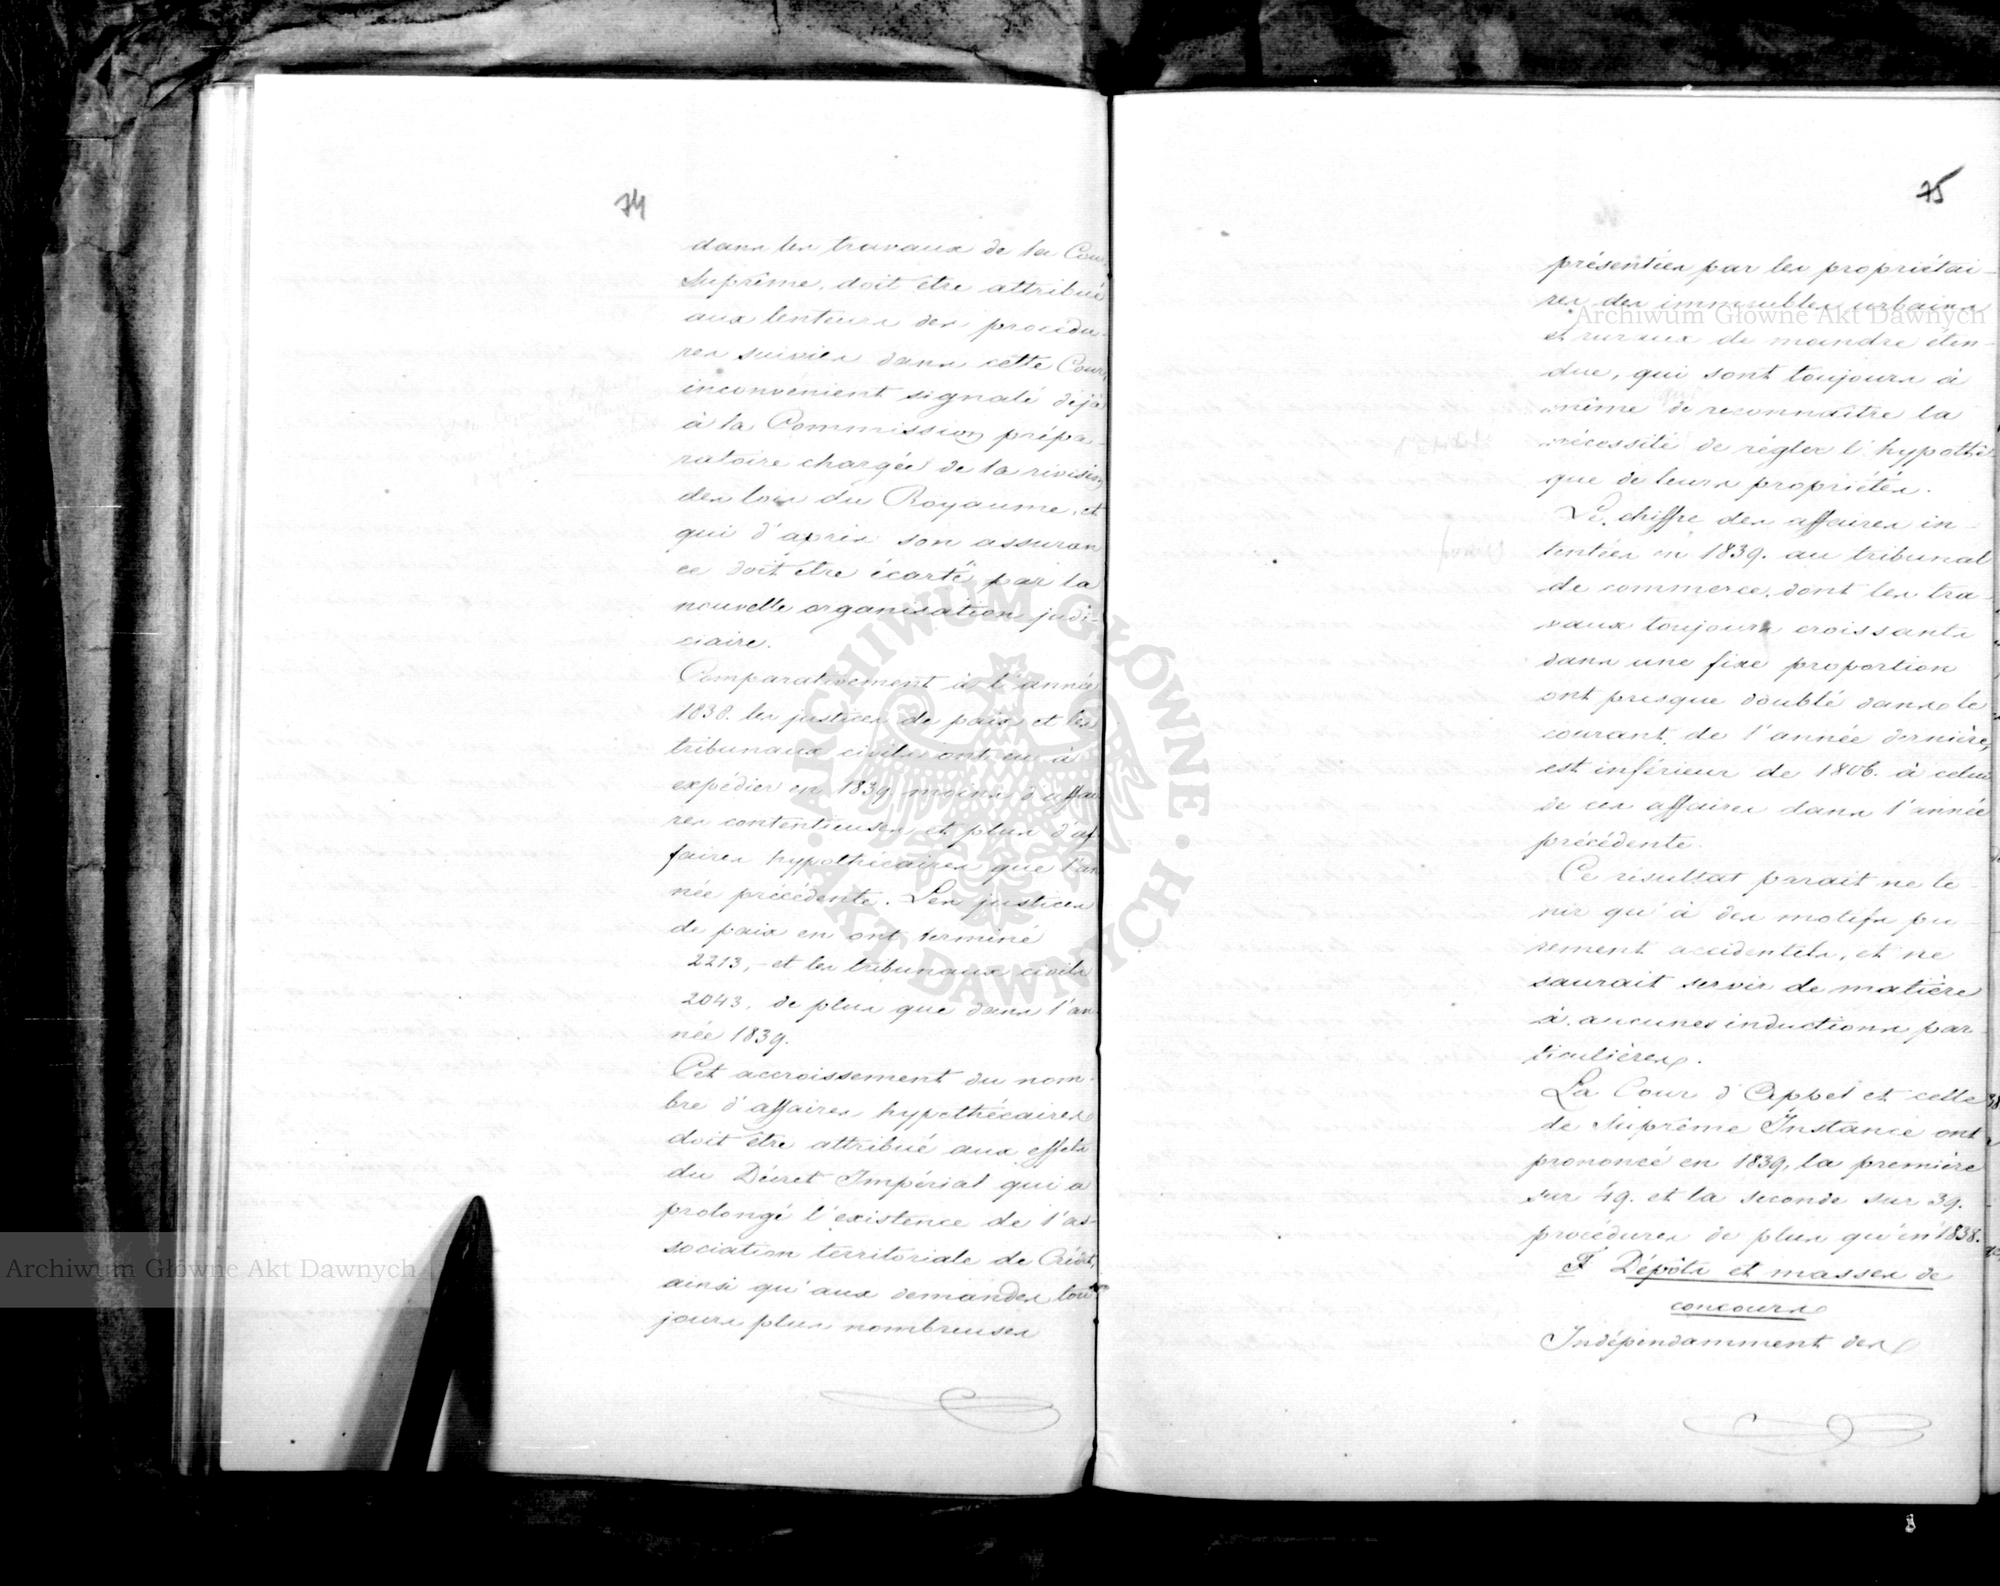 74
dans les travaux de la Cour
Suprême, doit être attribué
aux lenteurs des procédu-
res suivies dans cette Cour,
inconvénient signalé déjà
à la Commission prépa-
ratoire chargée de la revision
des lois du Royaume, et
qui d'après son assuran
ce doit être écarté par la
nouvelle organisation judi-
ciaire.
Comparativement à l'année
1838. les justices de paix et les
tribunaux civils ont eu à
expédier en 1839 moins d'affai
res contentieuses, et plus d'af-
faires hypothécaires que l'an
née précédente. Les justices
de paix en ont terminé
2213, - et les tribunaux civils
2043. de plus que dans l'an
née 1839.
Cet accroissement du nom-
bre d'affaires hypothécaires
doit être attribué aux effets
du Décret Impérial qui a
prolongé l'existence de l'as-
sociation territoriale de Crédit,
ainsi qu'aux demandes tou
jours plus nombreuses
75
présentées par les propriétai-
res des immeubles urbains
et ruraux de moindre éten-
due, qui sont toujours à
même de reconnaître la
nécessité de régler l'hypothè
que de leurs propriétés.
Le chiffre des affaires in-
tentées en 1839. au tribunal
de commerce, dont les tra-
vaux toujours croissants
dans une fixe proportion
ont presque doublé dans le
courant de l'année dernière,
est inférieur de 1806. à celui
de ces affaires dans l'année
précédente.
Ce résultat parait ne te-
nir qu'à des motifs pu-
rement accidentels, et ne
saurait servir de matière
à aucunes inductions par
ticulières.
La Cour d'Appel et celle
de Suprême Instance ont
prononcé en 1839, la première
sur 49. et la seconde sur 39.
procédures de plus qu'en 1838.
F Dépôts et masses de
concours
Indépendamment des
Archiwum Główne Akt Dawnych
Archiwum Główne Akt Dawnych
ARCHIWUM GŁÓWNE AKT DAWNYCH
8